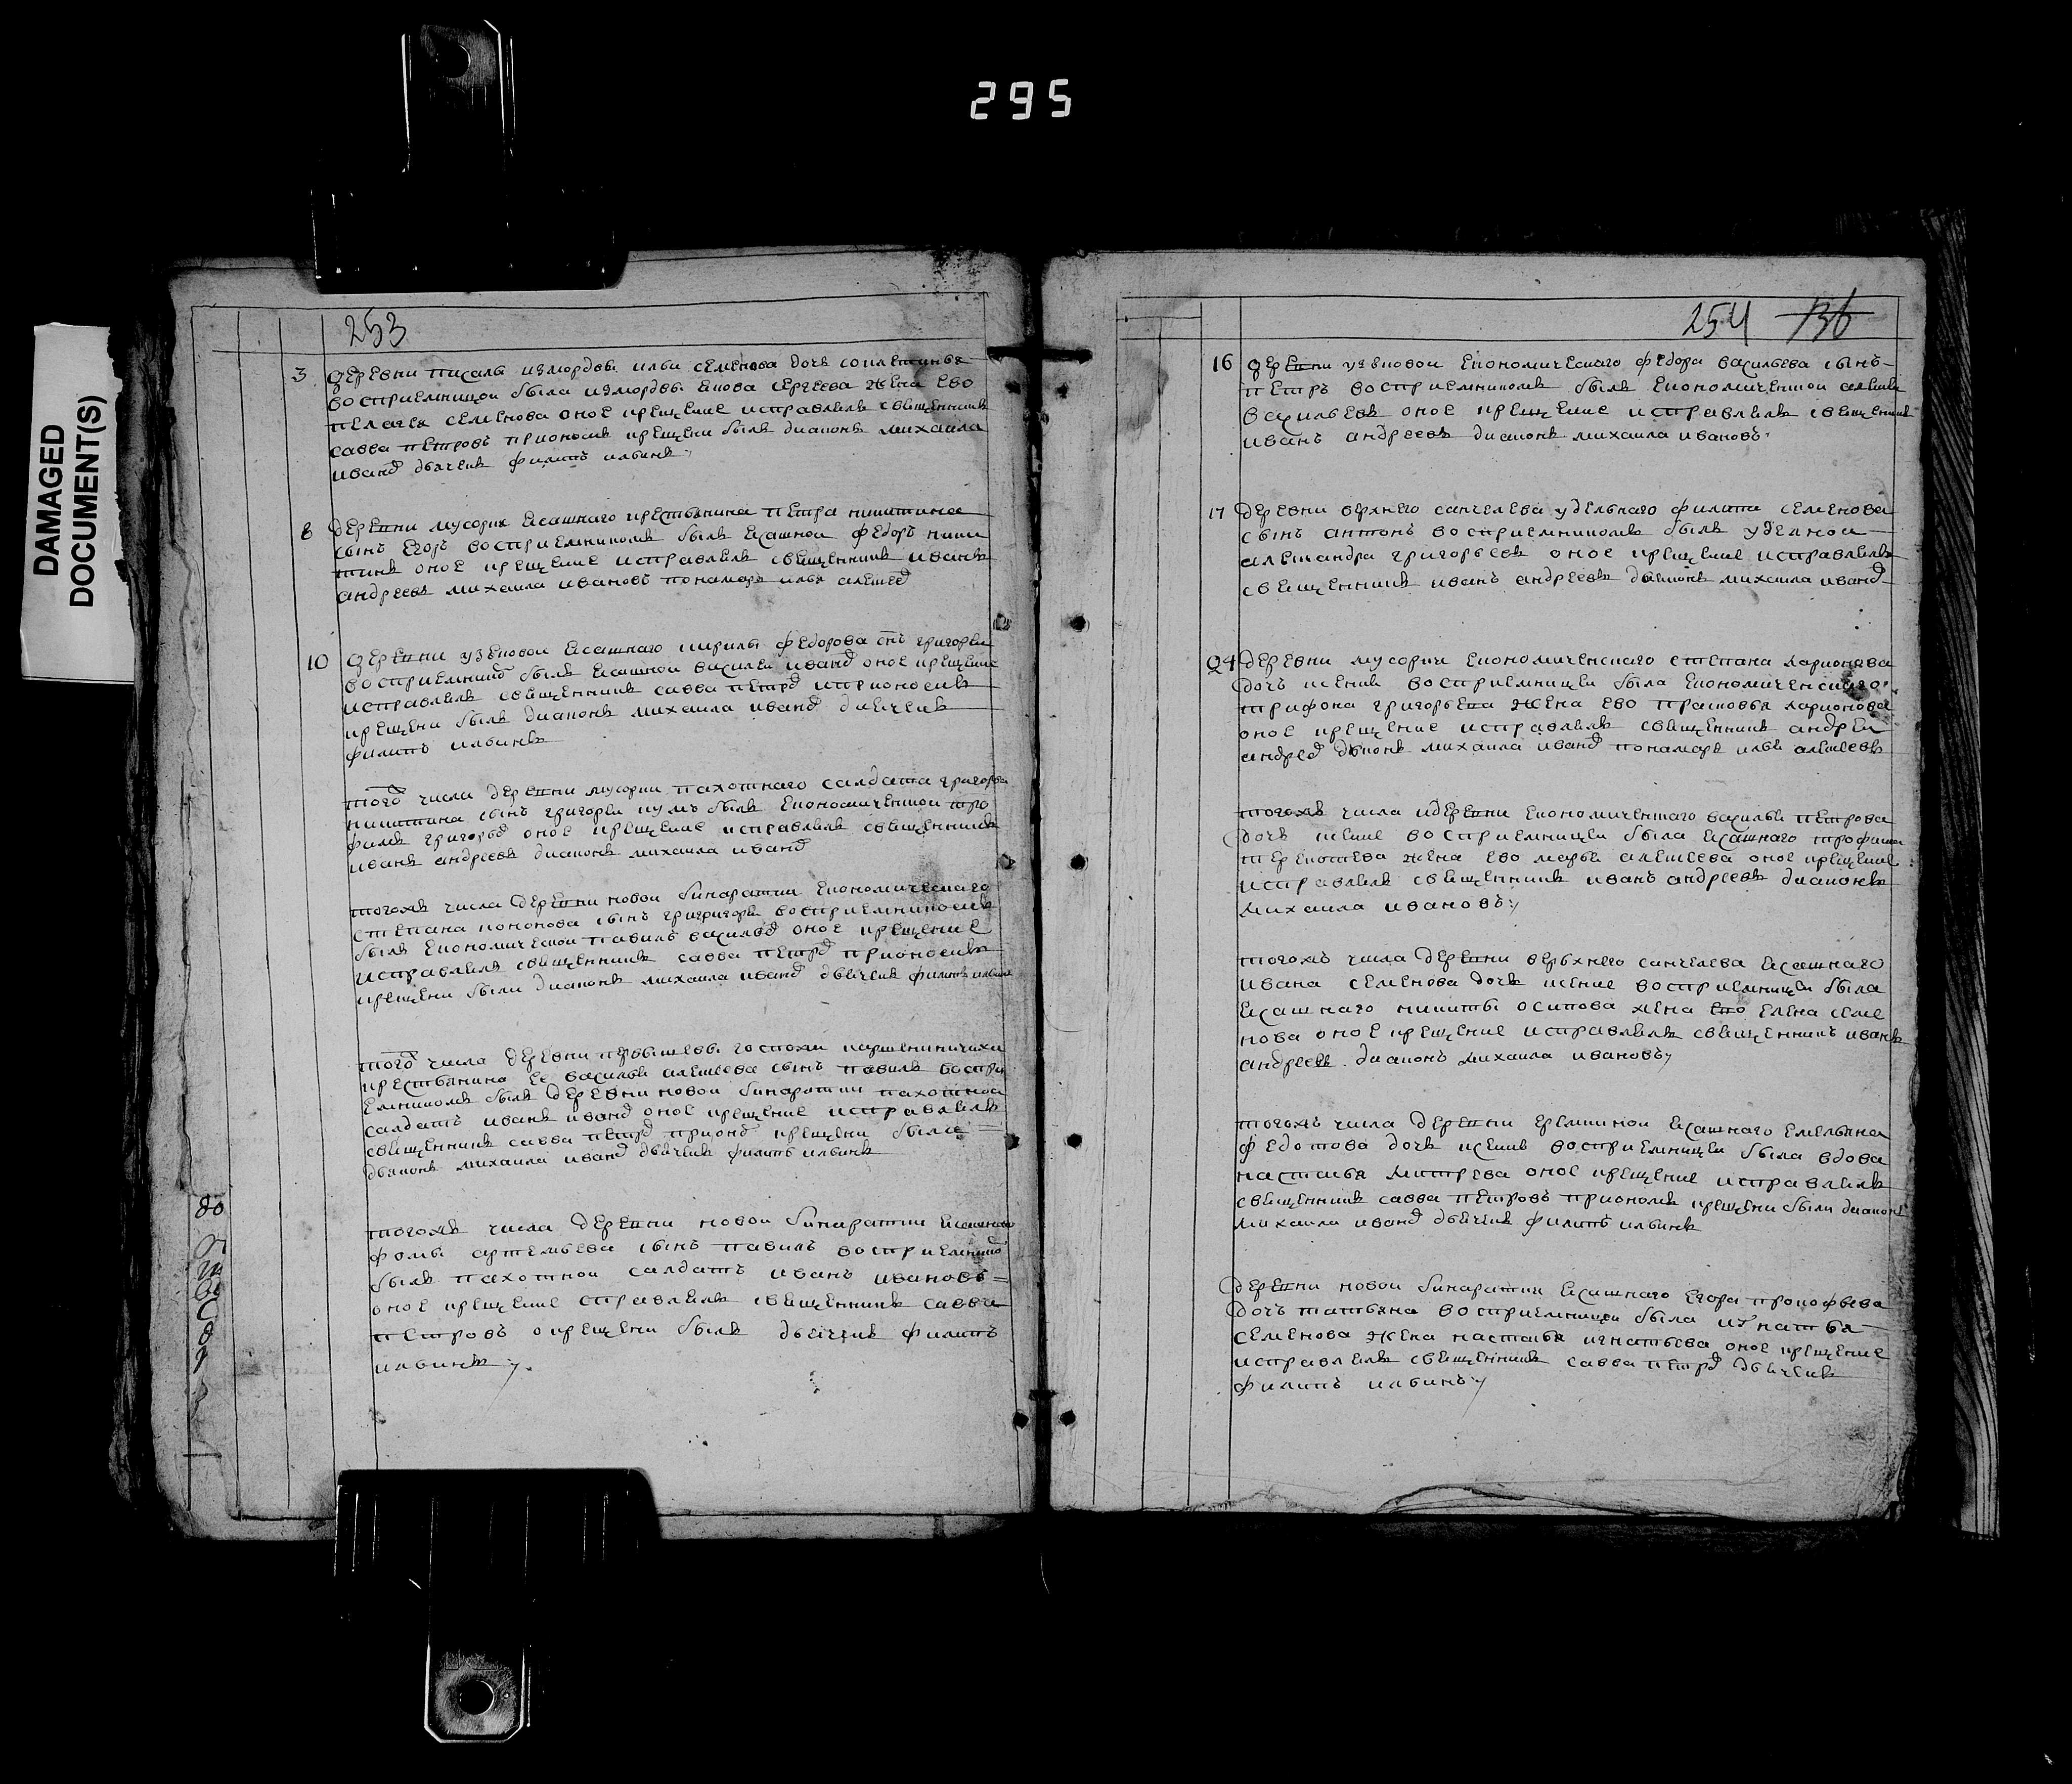 295
DAMAGED
DOCUMENT(S)
253
3 деревни писалы измордвы ильи семенова дочь
восприемницой была измордвы сергеева жена ево
пелагея семенова оное крещение исправлялъ священникъ
савва петровъ прионосив крещени былъ диаконъ михаила
иванов дьячекъ филипъ ильинъ
8 деревни мусорки ясашнаго крестьянина петра никитина
сынъ егоръ восприемникомъ былъ ясашной федоръ ники
тинъ оное крещение исправлялъ священникъ иванъ
андреевъ михаила ивановъ понамарь илья алексеев
10 деревни узюковой ясашнаго кирилы федорова снъ григорей
восприемником былъ ясашной василей иванов оное крещение
исправлялъ священникъ савва петров
крещени былъ диаконъ михаила иванов дьячекъ
филипъ ильинъ
того числа деревни мусорки пахотнаго салдата григорья
никитина сынъ григорей кумъ былъ економической тро
фимъ григорьев оное крещение исправлялъ священникъ
иванъ андреевъ диаконъ михаила иванов
тогожъ числа деревни новой бинаратки економическаго
степана кононова сынъ григригорей восприемникомъ
былъ економической павилъ васильев оное крещение
исправлялъ священникъ савва петров
крещени были диаконъ михаила иванов дьячекъ филипъ ильинъ
того числа деревни госпожи
крестьянина ее василья алексеева сынъ павилъ воспри
емникомъ былъ деревни новой бинаратки пахотной
салдатъ иванъ иванов оное крещение исправлялъ
священникъ савва петров прионов крещени были
дьяконъ михаила иванов дьячекъ филипъ ильинъ
тогожъ числа деревни новой бинаратки ясашнаго
фомы артемьева сынъ павилъ восприемником
былъ пахотной салдатъ иванъ ивановъ
оное крещение справлялъ священникъ савва
петровъ окрещени былъ дьячекъ филипъ
ильинъ
254 136
16 деревни узюковой економическаго федора васильева сынъ
петръ восприемникомъ былъ економической алексей
васильевъ оное крещение исправлялъ священникъ
иванъ андреевъ диаконъ михаила ивановъ
17 деревни верхнего санчелева удельнаго филипа семенова
сынъ антонъ восприемникомъ былъ уделной
александра григорьевъ оное крещение исправлялъ
священникъ иванъ андреевъ дьяконъ михаила иванов
24 деревни мусорки економическаго степана ларионова
дочь ксения восприемницей была економическаго
трифона григорьева жена ево прасковья ларионова
оное крещение исправлялъ священникъ андрей
андреев дьяконъ михаила иванов понамарь илья алексеевъ
тогожъ числа деревни економическаго василья петрова
дочь ксения восприемницей была ясашнаго трофима
терентева жена ево марья алексеева оное крещение
исправлялъ священникъ иванъ андреевъ диаконъ
михаила ивановъ
тогожъ числа деревни верьхнего санчелева ясашнаго
ивана семенова дочь ксения восприемницей была
ясашнаго никиты осипова жена ево елена семе
нова оное крещение исправлялъ священникъ иванъ
андреевъ диаконъ михаила ивановъ
тогожъ числа деревни еремкиной ясашнаго емельяна
федотова дочь ксения восприемницей была вдова
настасья митрева оное крещение исправлялъ
священникъ савва петровъ крещени были диаконъ
михаила иванов дьячекъ филипъ ильинъ
деревни новой бинаратки ясашнаго егора прокофьева
дочь татьяна восприемницей была игнатья
семенова жена настасья игнатьева оное крещение
исправлялъ священникъ савва петров дьячекъ
филипъ ильинъ